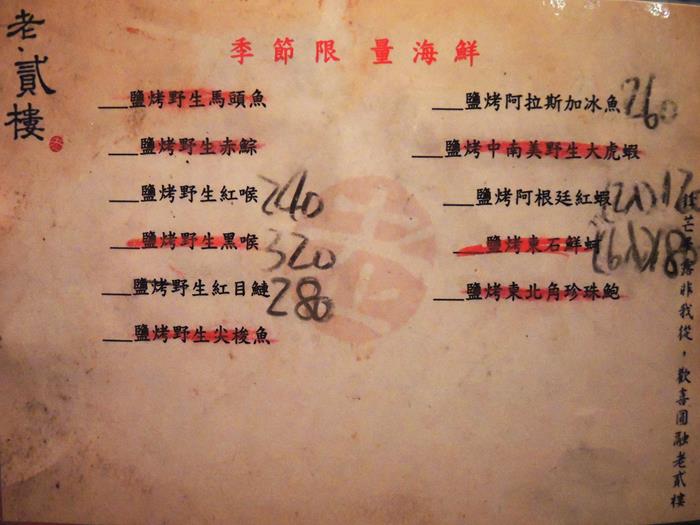 老·貳樓
季節限量海鮮
鹽烤野生馬頭魚
鹽烤野生赤鯮
鹽烤野生紅喉 240
鹽烤野生黑喉 320
鹽烤野生紅目鰱 280
鹽烤野生尖梭魚
鹽烤阿拉斯加冰魚 260
鹽烤中南美野生大虎蝦
鹽烤阿根廷紅蝦
鹽烤東石鮮蚵
鹽烤東北角珍珠鮑
非我從，歡喜圓融老貳樓